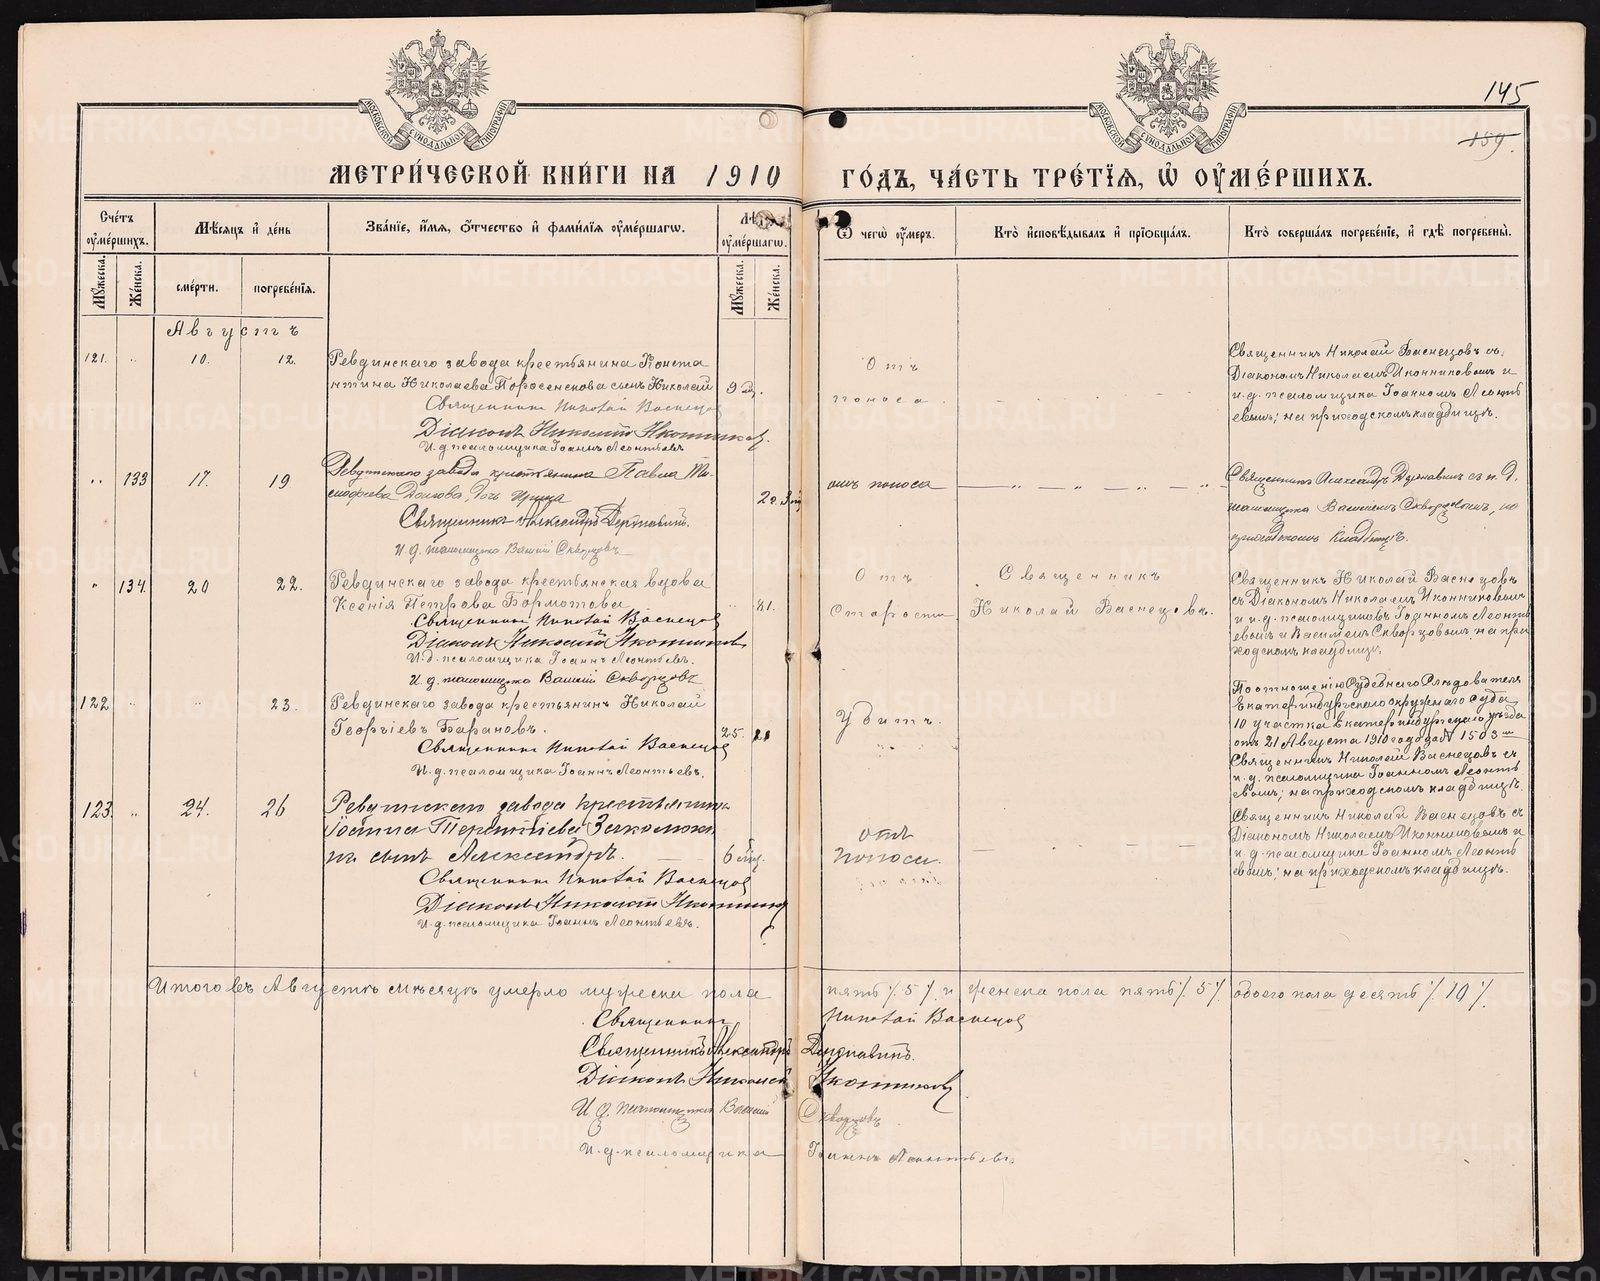 145
159.
МОСКОВСКОЙ СѴНОДАЛЬНОЙ ТИПОГРАФІИ
МОСКОВСКОЙ СѴНОДАЛЬНОЙ ТИПОГРАФІИ
МЕТРИ́ЧЕСКОЙ КНИ́ГИ НА 1910 ГО́ДЪ, ЧА́СТЬ ТРЕ́ТІѦ, Ѡ ОУ҆МЕ́РШИХЪ.
Сче́тъ оу҆ме́ршихъ.
Мѣ́сѧцъ и҆ де́нь
Зва́нїе, и҆́мѧ, ѻ҆́тчество и҆ фами́лїѧ оу҆ме́ршагѡ.
Лѣ оу҆ме́ршагѡ.
Ѿ чегѡ̀ оу҆́меръ.
Кто̀ и҆сповѣ́дывалъ и҆ прїѡбща́лъ.
Кто̀ соверша́лъ погребе́нїе, и҆ гдѣ̀ погребены̀.
Мꙋ́жеска.
Же́нска.
сме́рти.
погребе́нїѧ.
Мꙋ́жеска.
Же́нска.
Августъ
121. " 10. 12. Ревдинскаго завода крестьянина Конста
нтина Николаева Поросенкова сынъ Николай 9 м.
Священникъ Николай Васнецов
Діаконъ Николай Иконников.
И.д. псаломщика Іоаннъ Леонтьевъ
Отъ
поноса
Священникъ Николай Васнецовъ съ
Діакономъ Николаемъ Иконниковымъ и
и.д. псаломщика Іоанномъ Леонть
евымъ; на приходскомъ кладбищѣ.
" 133 17. 19 Ревдинскаго завода крестьянина Павла Ти
мофеева дочь Ирина 2 г. 3 м
Священникъ Александръ Державинъ.
И.д. псаломщика Василій Скворцовъ
отъ поноса
Священникъ Александръ Державинъ съ и.д.
псаломщика Василіемъ Скворцовымъ, на
приходскомъ кладбищѣ.
" 134. 20 22. Ревдинскаго завода крестьянская вдова
Ксенія Петрова Бормотова 81.
Священникъ Николай Васнецов
Діаконъ Николай Иконников
И.д. псаломщика Іоаннъ Леонтьевъ.
И.д. псаломщика Василій Скворцовъ
Отъ
старости
Священникъ
Николай Васнецовъ.
Священникъ Николай Васнецовъ
съ Діакономъ Николаемъ Иконниковымъ
и и.д. псаломщиковъ Іоанномъ Леонть
евымъ и Василіемъ Скворцовымъ, на при
ходскомъ кладбищѣ.
122 " " 23. Ревдинскаго завода крестьянинъ Николай
Георгіевъ Барановъ. 25.
Священникъ Николай Васнецов
И.д. псаломщика Іоаннъ Леонтьевъ.
Убитъ.
По отношенію Судебнаго Слѣдователя
Екатеринбургскаго окружнаго Суда
10 участка Екатеринбургскаго уѣзда
отъ 21 Августа 1910 года за № 1503
Священникъ Николай Васнецовъ съ
и.д. псаломщика Іоанномъ Леонть
евымъ; на приходскомъ кладбищѣ.
123. " 24. 26 Ревдинскаго завода крестьянина
Іоанна Терентіева
сынъ Александръ. 6 мѣс.
Священникъ Николай Васнецов
Діаконъ Николай Иконников
И.д. псаломщика Іоаннъ Леонтьевъ.
отъ
поноса.
Священникъ Николай Васнецовъ съ
Діакономъ Николаемъ Иконниковымъ и
и.д. псаломщика Іоанномъ Леонть
евымъ; на приходскомъ кладбищѣ.
Итого въ Августѣ мѣсяцѣ умерло мужеска пола пять /5/ и женска пола пять /5/ обоего пола десять /10/
Священникъ Николай Васнецов
Священникъ Александръ Державинъ.
Діаконъ Николай Иконников
И.д. псаломщика Василій Скворцовъ
И.д. псаломщика Іоаннъ Леонтьевъ.
METRIKI.GASO-URAL.RU